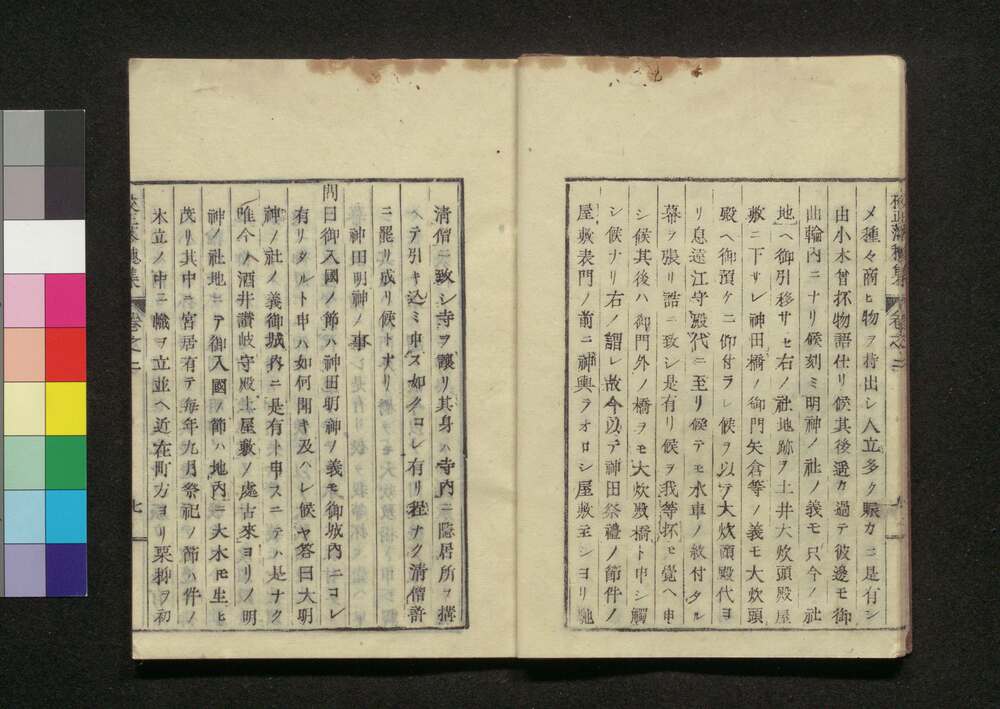 校正落穂集　巻之二
メ種々商ヒ物ヲ持出シ人立多ク賑カニ是有シ
由小木曾抔物語仕リ候其後遥カ過テ彼邊モ御
曲輪内ニナリ候刻ミ明神ノ社ノ義モ只今ノ社
地ヘ御引移サセ右ノ社地跡ヲ土井大炊頭殿屋
敷ニ下サレ神田橋ノ御門矢倉等ノ義モ大炊頭
殿ヘ御預ケニ仰付ラレ候ヲ以テ大炊頭殿代ヨ
リ息遠江守殿代ニ至リ候テモ水車ノ紋付タル
幕ヲ張リ詰ニ致シ是有リ候ヲ我等抔モ覺ヘ申
シ候其後ハ御門外ノ橋ヲモ大炊殿橋ト申シ觸
シ候ナリ右ノ謂レ故今以テ神田祭禮ノ節件ノ
屋敷表門ノ前ニ神輿ヲオロシ屋敷主シヨリ馳
清僧ニ致シ寺ヲ譲リ其身ハ寺内ニ隠居所ヲ構
ヘテ引キ込ミ申ス如クコレ有リ程ナク清僧許
ニ罷リ成リ候ト
神田明神ノ事
問曰御入國ノ節ハ神田明神ノ義モ御城内ニコレ
有リタルト申ハ如何聞キ及ハレ候ヤ答曰大明
神ノ社ノ義御城内ニ是有ト申スニテハ是ナク
唯今ノ酒井讃岐守殿上屋敷ノ處古來ヨリノ明
神ノ社地ニテ御入國ノ節ハ地内ニ大木モ生ヒ
茂リ其中ニ宮居有テ毎年九月祭祀ノ節件ノ
木立ノ中ニ幟ヲ立並ヘ近在町方ヨリ粟ヲ初
校正落穂集　巻之二　七